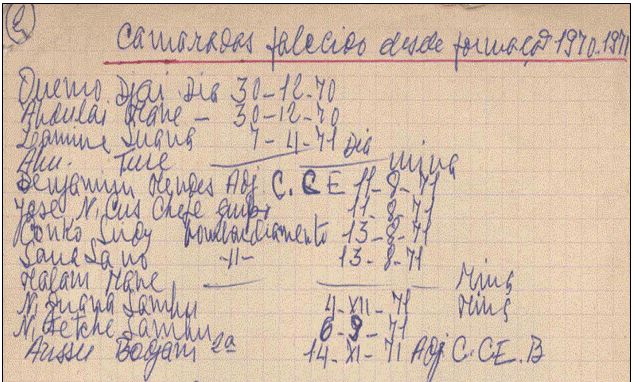 Camaradas falecido desde formação 1970.1971
Quemo Djai Dia 30-12-70
Abdulai Mane - 30-12-70
Lamine Juana 7-4-71 Dia
Abu. Ture mina
Benjamin Mendes Adj. C. C E 11-8-71
Jose N. Cus Chefe grupo 11-8-71
Conko Indy bombardiamento 13-8-71
Sana Sano -11- 13-8-71
Malam Mane Mina
N. Juana Sambu 4-XII-71 Mina
N. Fetche Sambu 6-9-71
Aussu Bodjam 2ª 14-XI-71 Adj. C. CE. B